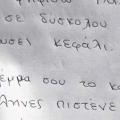 σε δύσκολου
υσει κεφάλι.
έρμα σου το κα
ληνες πιστενε